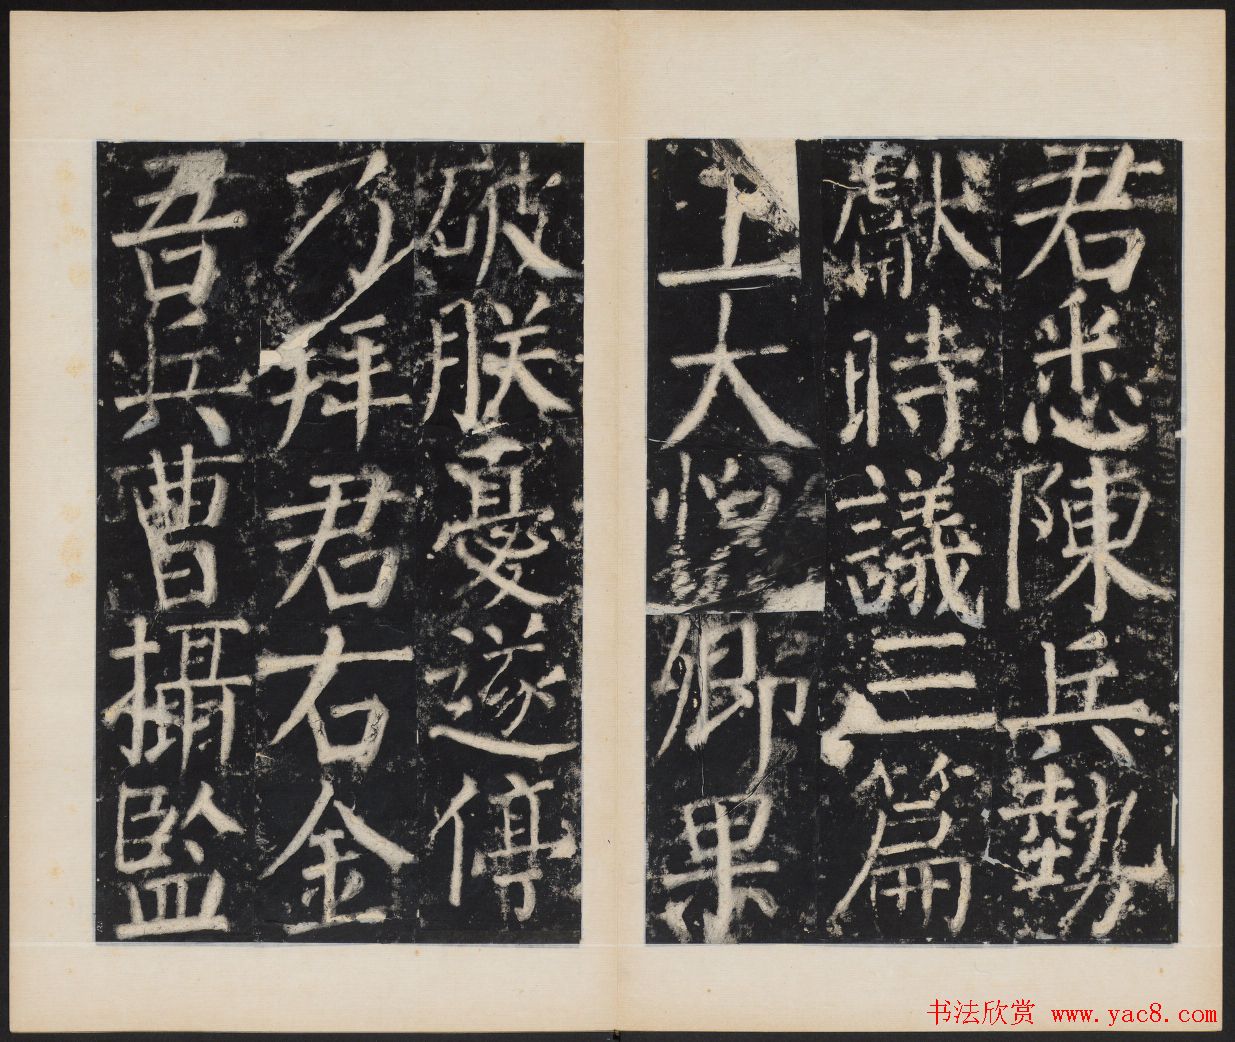 君悉陳兵勢
獻時議三篇
上大悦卿果
破朕憂遂停
乃拜君右金
吾兵曹攝監
书法欣赏 www.yac8.com